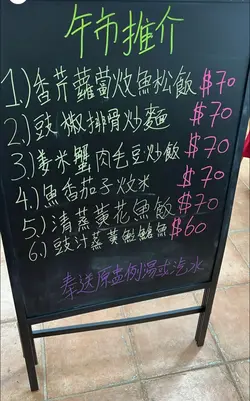 午市推介
1.)香芹蘿蔔炆魚松飯 $70
2.)豉椒排骨炒麵 $70
3.)姜米蟹肉毛豆炒飯 $70
4.)魚香茄子炆米 $70
5.)清蒸黃花魚飯 $70
6.)豉汁蒸黃魚 $60
奉送原盅例湯或汽水